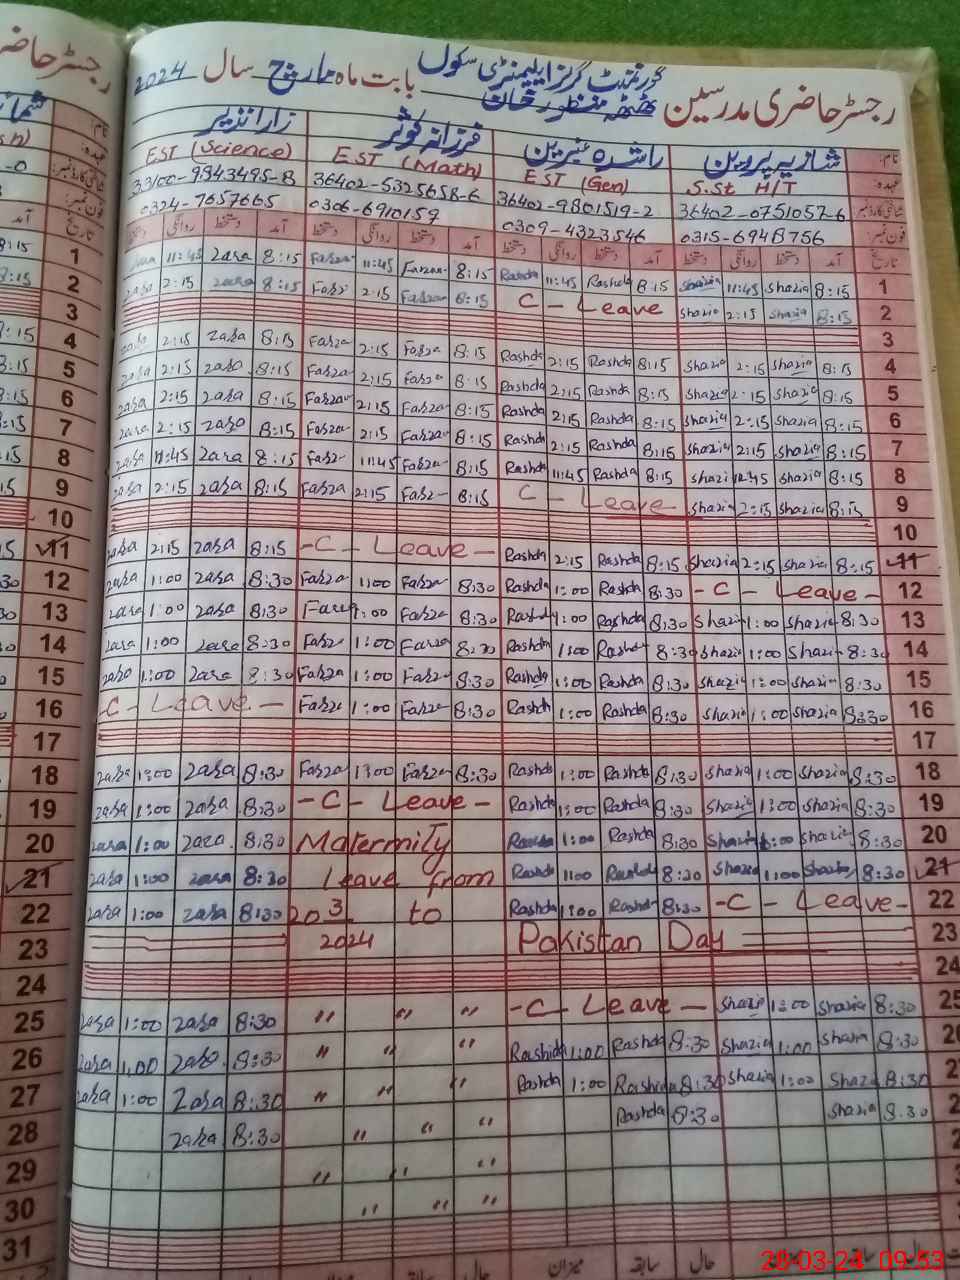 رجسٹر حاضری مدرسین گورنمنٹ گرلز ایلیمنٹری سکول بابت ماہ مارچ سال 2024
ٹھٹھہ منظور خان
نام: شازیہ پروین راشدہ شیریں فرزانہ کوثر زارا نذیر
عہدہ: S.St H/T EST (Gen) EST (Math) EST (Science)
شناختی کارڈ نمبر: 36402-0751057-6 36402-9801519-2 36402-5325658-6 33100-9843495-8
فون نمبر: 0315-6948756 0309-4323546 0306-6910159 0324-7657665
تاریخ آمد دستخط روانگی دستخط آمد دستخط روانگی دستخط آمد دستخط روانگی دستخط آمد دستخط روانگی دستخط
1 8:15 Shazia 11:45 Shazia 8:15 Rashda 11:45 Rashda 8:15 Farzan 11:45 Farzan 8:15 zara 11:45
2 8:15 Shazia 2:15 Shazia C - Leave 8:15 Farzan 2:15 Farz 8:15 zara 2:15 zara
3
4 8:15 Shazia 2:15 Shazia 8:15 Rashda 2:15 Rashda 8:15 Farza 2:15 Farza 8:15 zara 2:15 zara
5 8:15 Shazia 2:15 Shazia 8:15 Rashda 2:15 Rashda 8:15 Farza 2:15 Farza 8:15 zara 2:15 zara
6 8:15 Shazia 2:15 Shazia 8:15 Rashda 2:15 Rashda 8:15 Farza 2:15 Farza 8:15 zara 2:15 zara
7 8:15 Shazia 2:15 Shazia 8:15 Rashda 2:15 Rashda 8:15 Farza 2:15 Farza 8:15 zara 2:15 zara
8 8:15 Shazia 11:45 Shazi 8:15 Rashda 11:45 Rashda 8:15 Farza 11:45 Farz 8:15 zara 11:45 zara
9 8:15 Shazia 2:15 Shazia C - Leave 8:15 Farz 2:15 Farza 8:15 zara 2:15 zara
10
11 8:15 Shazia 2:15 Shazia 8:15 Rashda 2:15 Rashda -C- Leave- 8:15 zara 2:15 zara
12 -C- Leave- 8:30 Rashda 1:00 Rashda 8:30 Farza 1:00 Farza 8:30 zara 1:00 zara
13 8:30 Shazia 1:00 Shazi 8:30 Rashda 1:00 Rashda 8:30 Farza 1:00 8:30 zara 1:00 zara
14 8:30 Shazia 1:00 Shazia 8:30 Rashda 1:00 Rashda 8:30 Farza 1:00 Farz 8:30 zara 1:00 zara
15 8:30 Shazia 1:00 Shazia 8:30 Rashda 1:00 Rashda 8:30 Farza 1:00 Farza 8:30 zara 1:00 zara
16 8:30 Shazia 1:00 Shazia 8:30 Rashda 1:00 Rashda 8:30 Farza 1:00 Farza -C- Leave-
17
18 8:30 Shazia 1:00 Shazia 8:30 Rashda 1:00 Rashda 8:30 Farza 1:00 Farza 8:30 zara 1:00 zara
19 8:30 Shazia 1:00 Shazia 8:30 Rashda 1:00 Rashda -C- Leave- 8:30 zara 1:00 zara
20 8:30 Shazia 1:00 Shazia 8:30 Rashda 1:00 Rashda Matermity 8:30 zara 1:00 zara
21 8:30 Shazia 1:00 Shazia 8:30 Rashda 1:00 Rashda Leave from 8:30 zara 1:00 zara
22 -C- Leave- 8:30 Rashda 1:00 Rashda 20 3 to 8:30 zara 1:00 zara
23 Pakistan Day 2024
24
25 8:30 Shazia 1:00 Shazia -C- Leave- " " " 8:30 zara 1:00 zara
26 8:30 Shazia 1:00 Shazia 8:30 Rashda 1:00 Rashida " " " 8:30 zara 1:00 zara
27 8:30 Shazia 1:00 Shazia 8:30 Rashida 1:00 Rashda " " " 8:30 zara 1:00 zara
28 8:30 Shazia 8:30 Rashda " " " 8:30 zara
29 " " "
30 " " "
31
حال سابقہ میزان حال سابقہ میزان
28-03-24 09:53